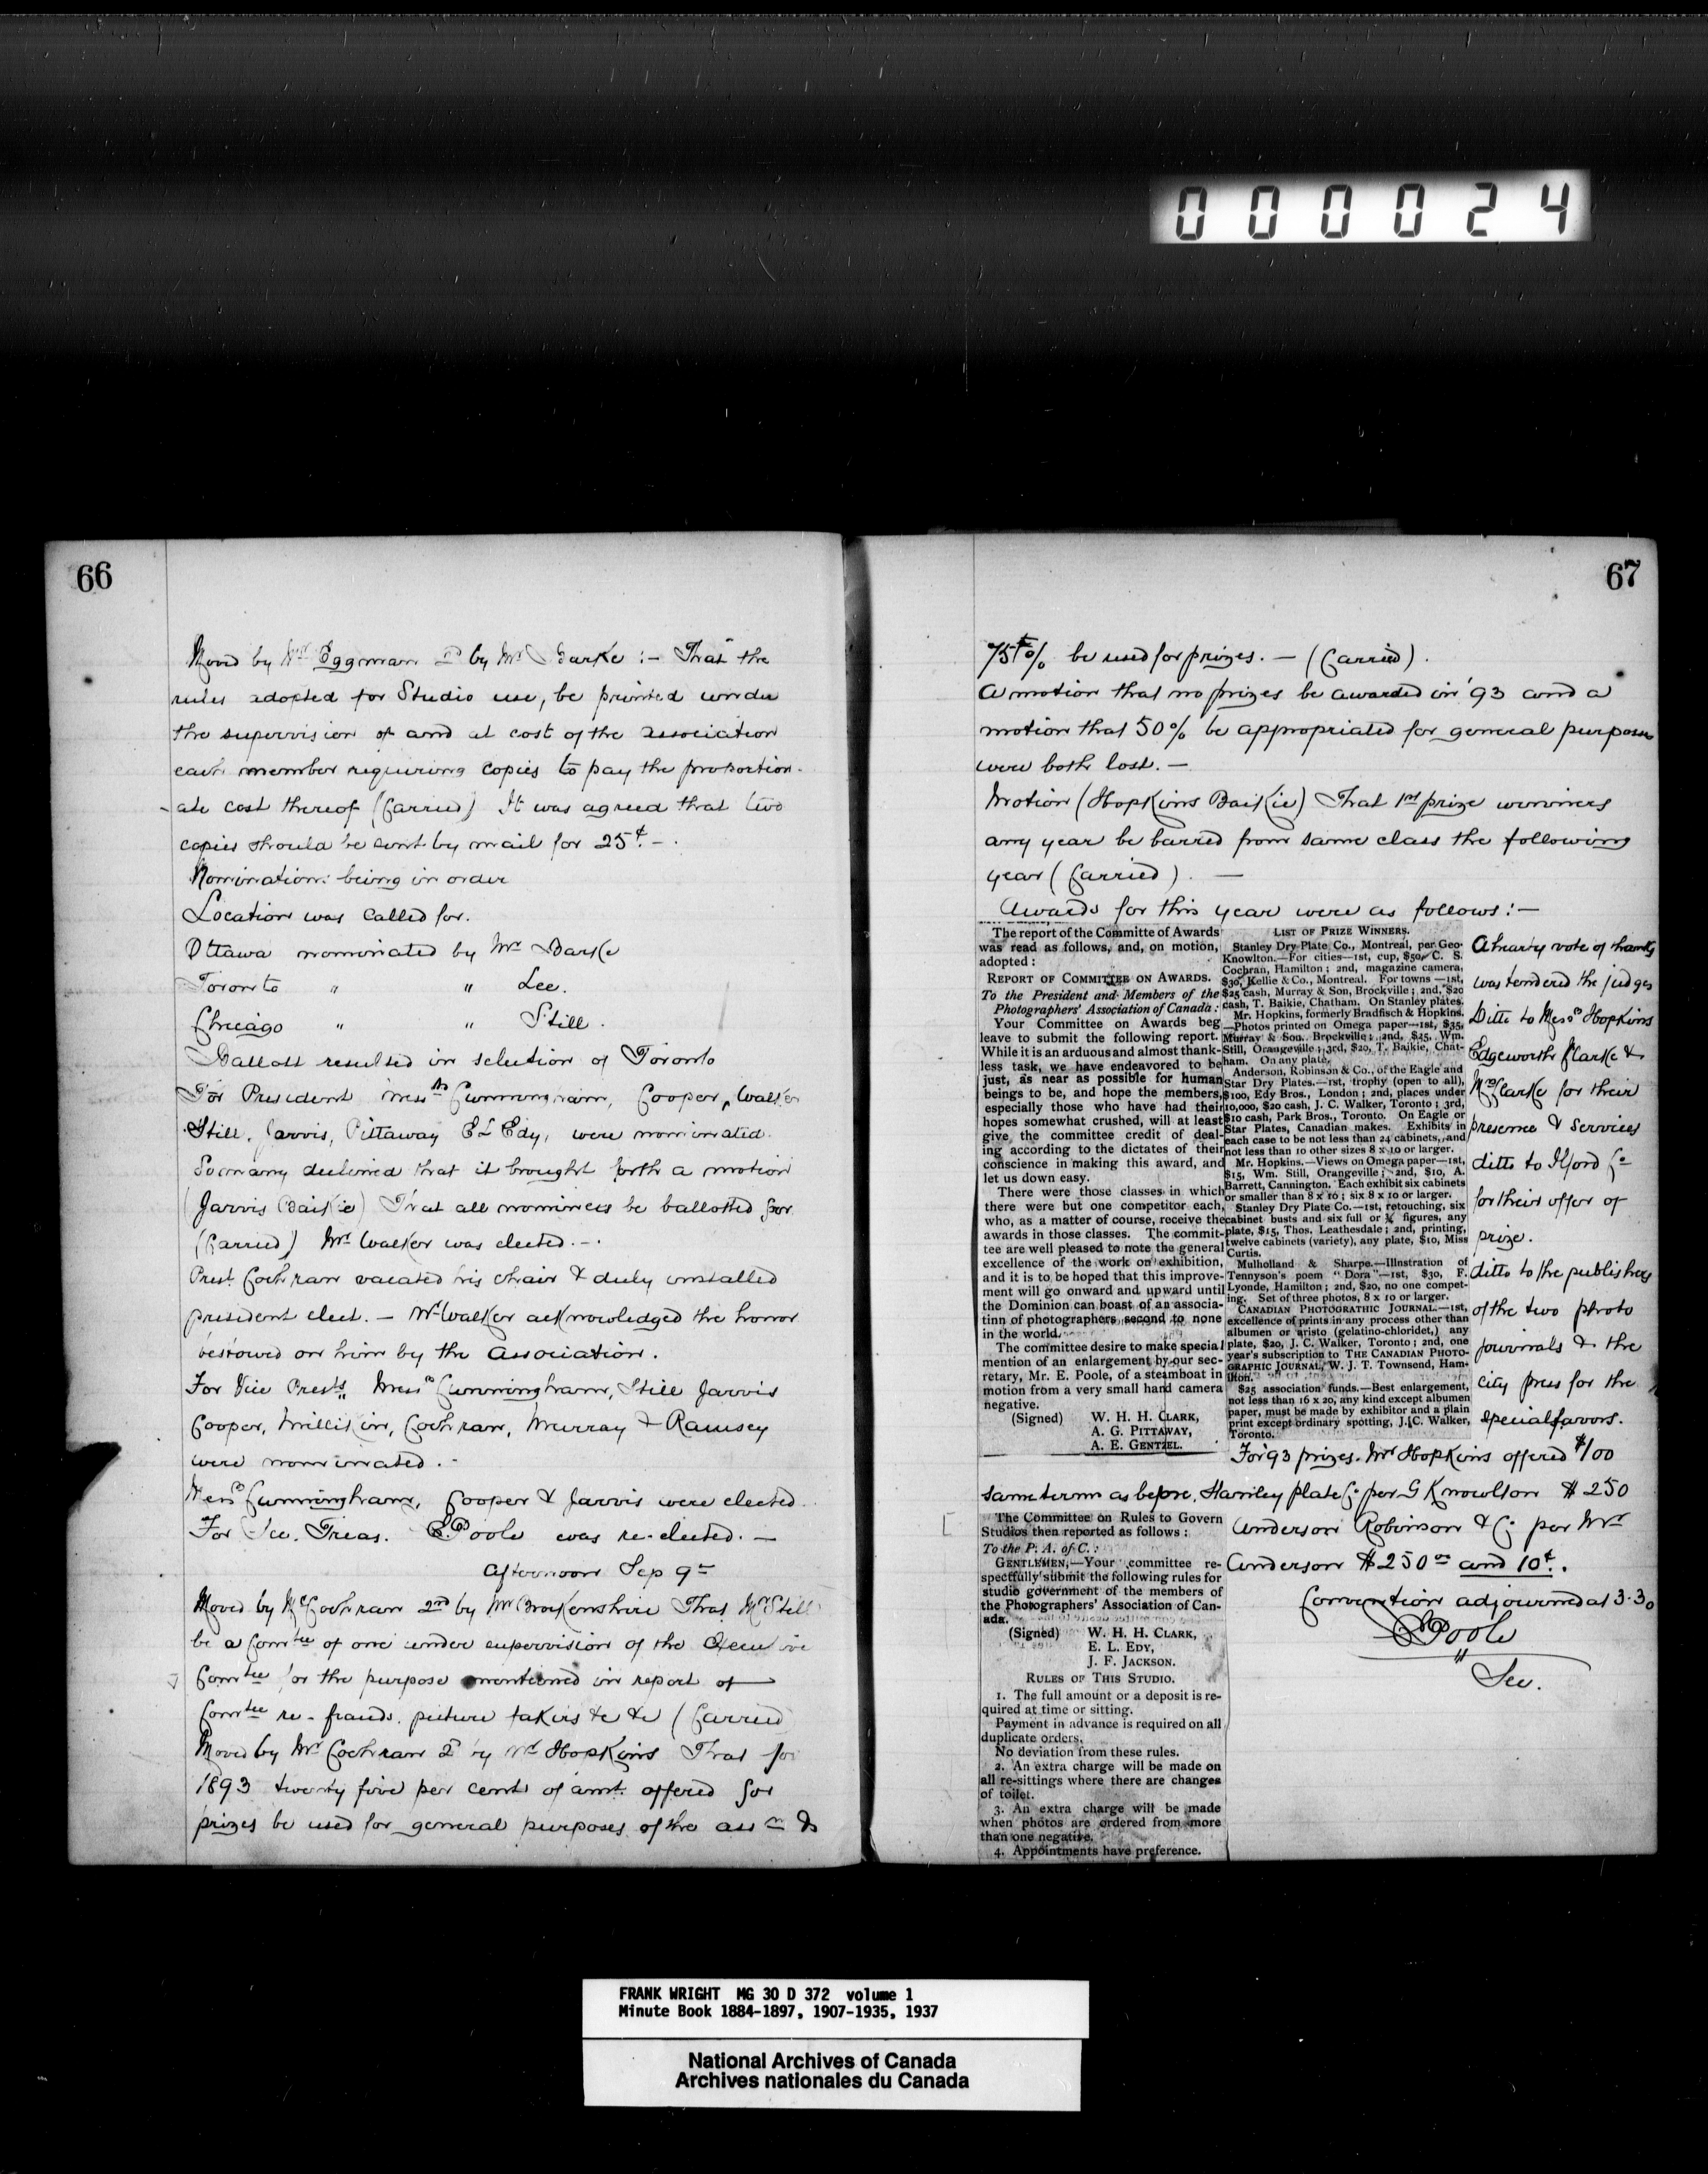 000024
66
Moved by Mr Eggman 2d by Mr Barke :- That the
rules adopted for Studio use, be printed under
the supervision of and at cost of the association
each member requiring copies to pay the proportion-
ate cost thereof (Carried) It was agreed that two
copies should be sent by mail for 25¢. -
Nominations being in order
Location was called for.
Ottawa nominated by Mr Barke
Toronto " " Lee.
Chicago " " Still.
Ballott resulted in selection of Toronto
For President Messrs Cunningham, Cooper, Walker
Still, Jarvis, Pittaway E L Edy, were nominated.
So many declined that it brought forth a motion
(Jarvis Baikie) That all nominees be ballotted for
(Carried) Mr Walker was elected. -.
Prest. Cochran vacated his chair & duly installed
president elect. - Mr Walker acknowledged the honor
bestowed on him by the Association.
For Vice Prests, Messrs Cunningham, Still Jarvis
Cooper, Millikin, Cochran, Murray & Ramsey
were nominated. -
Messrs Cunningham, Cooper & Jarvis were elected.
For Sec. Treas. E. Poole was re-elected. -
Afternoon Sep 9th
Moved by Mr Cochran 2nd by Mr Brokenshire That Mr Still
be a Comtee of one under supervision of the Executive
Comtee for the purpose mentioned in report of
Comtee re- frauds. picture takers &c &c (Carried
Moved by Mr Cochran 2d by Mr Hopkins That for
1893 twenty five per cent of amt. offered for
prizes be used for general purposes of the assn &
67
75% be used for prizes. - (Carried).
A motion that no prizes be awarded in '93 and a
motion that 50% be appropriated for general purposes
were both lost. -
Motion (Hopkins Baikie) That 1st prize winners
any year be barred from same class the following
year (Carried). -
Awards for this year were as follows :-
The report of the Committe of Awards
was read as follows, and, on motion,
adopted :
REPORT OF COMMITTEE ON AWARDS.
To the President and Members of the
Photographers' Association of Canada :
Your Committee on Awards beg
leave to submit the following report.
While it is an arduous and almost thank-
less task, we have endeavored to be
just, as near as possible for human
beings to be, and hope the members,
especially those who have had their
hopes somewhat crushed, will at least
give the committee credit of deal-
ing according to the dictates of their
conscience in making this award, and
let us down easy.
There were those classes in which
there were but one competitor each,
who, as a matter of course, receive the
awards in those classes. The commit-
tee are well pleased to note the general
excellence of the work on exhibition,
and it is to be hoped that this improve-
ment will go onward and upward until
the Dominion can boast of an associa-
tinn of photographers second to none
in the world.
The committee desire to make special
mention of an enlargement by our sec-
retary, Mr. E. Poole, of a steamboat in
motion from a very small hand camera
negative.
(Signed) W. H. H. CLARK,
A. G. PITTAWAY,
A. E. GENTZEL.
LIST OF PRIZE WINNERS.
Stanley Dry Plate Co., Montreal, per Geo-
Knowlton.—For cities—1st, cup, $50, C. S.
Cochran, Hamilton ; 2nd, magazine camera,
$30, Kellie & Co., Montreal. For towns—1st,
$25 cash, Murray & Son, Brockville ; 2nd, $20
cash, T. Baikie, Chatham. On Stanley plates.
Mr. Hopkins, formerly Bradfisch & Hopkins.
—Photos printed on Omega paper—1st, $35,
Murray & Son, Brockville ; 2nd, $25, Wm.
Still, Orangeville ; 3rd, $20, T. Baikie, Chat-
ham. On any plate.
Anderson, Robinson & Co., of the Eagle and
Star Dry Plates.—1st, trophy (open to all),
$100, Edy Bros., London ; 2nd, places under
10,000, $20 cash, J. C. Walker, Toronto ; 3rd,
$10 cash, Park Bros., Toronto. On Eagle or
Star Plates, Canadian makes. Exhibits in
each case to be not less than 24 cabinets, and
not less than 10 other sizes 8 x 10 or larger.
Mr. Hopkins.—Views on Omega paper—1st,
$15, Wm. Still, Orangeville ; 2nd, $10, A.
Barrett, Cannington. Each exhibit six cabinets
or smaller than 8 x 10 ; six 8 x 10 or larger.
Stanley Dry Plate Co.—1st, retouching, six
cabinet busts and six full or ¾ figures, any
plate, $15, Thos. Leathesdale ; 2nd, printing,
twelve cabinets (variety), any plate, $10, Miss
Curtis.
Mulholland & Sharpe.—Illnstration of
Tennyson's poem "Dora"—1st, $30, F.
Lyonde, Hamilton ; 2nd, $20, no one compet-
ing. Set of three photos, 8 x 10 or larger.
CANADIAN PHOTOGRATHIC JOURNAL.—1st,
excellence of prints in any process other than
albumen or aristo (gelatino-chloridet,) any
plate, $20, J. C. Walker, Toronto ; 2nd, one
year's subscription to THE CANADIAN PHOTO-
GRAPHIC JOURNAL, W. J. T. Townsend, Ham-
ilton.
$25 association funds.—Best enlargement,
not less than 16 x 20, any kind except albumen
paper, must be made by exhibitor and a plain
print except ordinary spotting, J. C. Walker,
Toronto.
A hearty vote of thanks
was tendered the judges
Ditto to Messrs Hopkins
Edgeworth Clarke &
Mrs Clarke for their
presence & services
ditto to Ilford Co
for their offer of
prize.
ditto to the publishers
of the two photo
journals & the
city press for the
special favors.
For '93 prizes. Mr Hopkins offered $100
same terms as before, Stanley plate Co. per G Knowlton $250
Anderson Robinson & Co. per Mr
Anderson $250 00 and 10¢.
Convention adjourned at 3.30
E Poole
Sec.
The Committee on Rules to Govern
Studios then reported as follows :
To the P. A. of C. :
GENTLEMEN,—Your committee re-
spectfully submit the following rules for
studio government of the members of
the Photographers' Association of Can-
ada.
(Signed) W. H. H. CLARK,
E. L. EDY,
J. F. JACKSON.
RULES OF THIS STUDIO.
1. The full amount or a deposit is re-
quired at time or sitting.
Payment in advance is required on all
duplicate orders.
No deviation from these rules.
2. An extra charge will be made on
all re-sittings where there are changes
of toilet.
3. An extra charge will be made
when photos are ordered from more
than one negative.
4. Appointments have preference.
FRANK WRIGHT MG 30 D 372 volume 1
Minute Book 1884-1897, 1907-1935, 1937
National Archives of Canada
Archives nationales du Canada